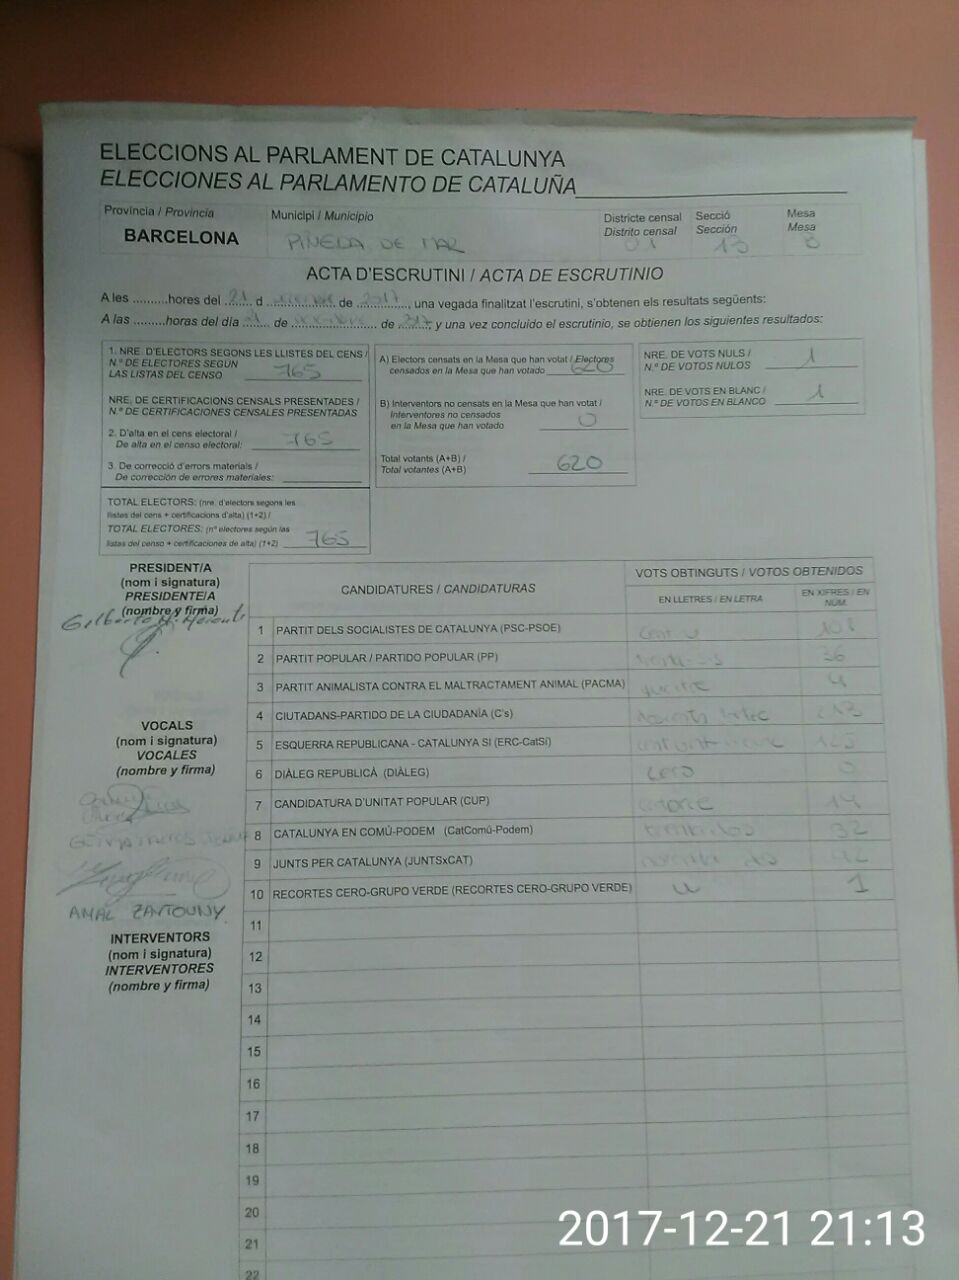 ELECCIONS AL PARLAMENT DE CATALUNYA
ELECCIONES AL PARLAMENTO DE CATALUÑA
Provincia / Provincia
BARCELONA
Municipi / Municipio
PINEDA DE MAR
Districte censal
Distrito censal
01
Secció
Sección
Mesa
Mesa
ACTA D'ESCRUTINI / ACTA DE ESCRUTINIO
A les ..........hores del 21 d ............ de 2017, una vegada finalitzat l'escrutini, s'obtenen els resultats següents:
A las .........horas del día ...... de ............ de ......, y una vez concluido el escrutinio, se obtienen los siguientes resultados:
1. NRE. D'ELECTORS SEGONS LES LLISTES DEL CENS /
N.º DE ELECTORES SEGÚN
LAS LISTAS DEL CENSO 765
NRE. DE CERTIFICACIONS CENSALS PRESENTADES /
N.º DE CERTIFICACIONES CENSALES PRESENTADAS
2. D'alta en el cens electoral /
De alta en el censo electoral: 765
3. De correcció d'errors materials /
De corrección de errores materiales:
TOTAL ELECTORS: (nre. d'electors segons les
llistes del cens + certificacions d'alta) (1+2) /
TOTAL ELECTORES: (nº electores según las
listas del censo + certificaciones de alta) (1+2) 765
A) Electors censats en la Mesa que han votat / Electores
censados en la Mesa que han votado 620
B) Interventors no censats en la Mesa que han votat /
Interventores no censados
en la Mesa que han votado 0
Total votants (A+B) /
Total votantes (A+B) 620
NRE. DE VOTS NULS /
N.º DE VOTOS NULOS 1
NRE. DE VOTS EN BLANC /
N.º DE VOTOS EN BLANCO 1
PRESIDENT/A
(nom i signatura)
PRESIDENTE/A
(nombre y firma)
Gilberto
VOCALS
(nom i signatura)
VOCALES
(nombre y firma)
AMAL ZAYTOUNY
INTERVENTORS
(nom i signatura)
INTERVENTORES
(nombre y firma)
CANDIDATURES / CANDIDATURAS
VOTS OBTINGUTS / VOTOS OBTENIDOS
EN LLETRES / EN LETRA
EN XIFRES / EN NÚM.
1 PARTIT DELS SOCIALISTES DE CATALUNYA (PSC-PSOE) 108
2 PARTIT POPULAR / PARTIDO POPULAR (PP) 36
3 PARTIT ANIMALISTA CONTRA EL MALTRACTAMENT ANIMAL (PACMA) 4
4 CIUTADANS-PARTIDO DE LA CIUDADANÍA (C's) 213
5 ESQUERRA REPUBLICANA - CATALUNYA SI (ERC-CatSí)
6 DIÀLEG REPUBLICÀ (DIÀLEG) cero 0
7 CANDIDATURA D'UNITAT POPULAR (CUP) catorce 14
8 CATALUNYA EN COMÚ-PODEM (CatComú-Podem) 32
9 JUNTS PER CATALUNYA (JUNTSxCAT) 92
10 RECORTES CERO-GRUPO VERDE (RECORTES CERO-GRUPO VERDE) 1
11
12
13
14
15
16
17
18
19
20
21
22
2017-12-21 21:13